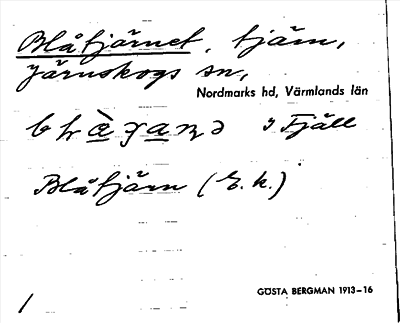 Blåtjärnet, tjärn,
Järnskogs sn,
Nordmarks hd, Värmlands län
i Fjäll
Blåtjärn (E. k.)
GÖSTA BERGMAN 1913-16
1